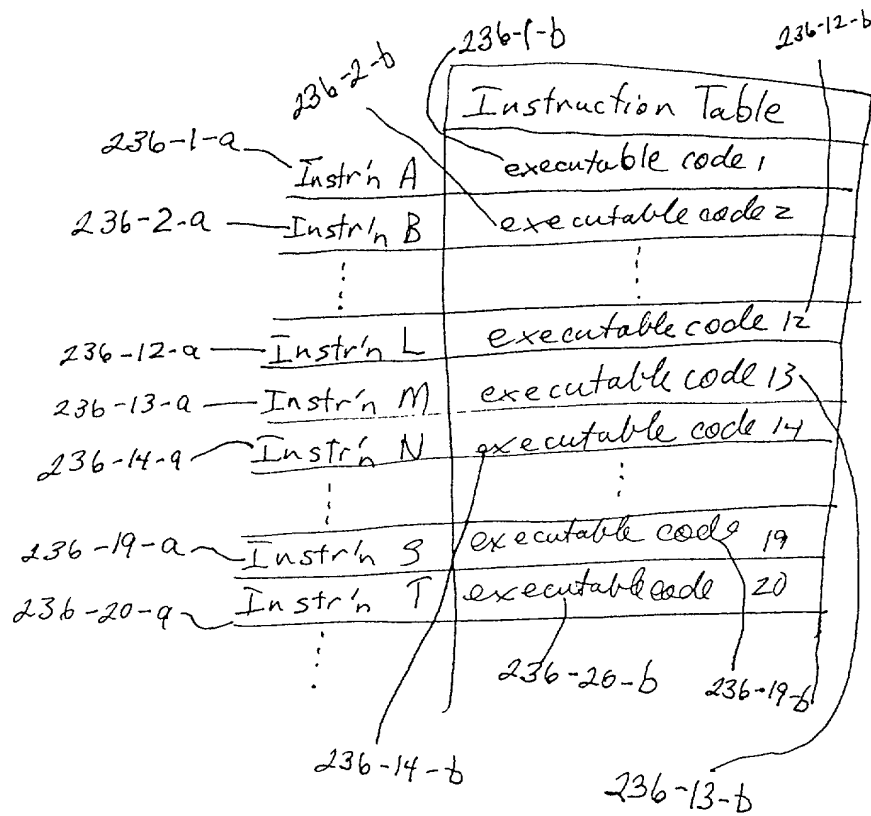 236-1-b
236-12-b
236-2-b
Instruction Table
236-1-a
Instr'n A executable code 1
236-2-a Instr'n B executable code 2
236-12-a Instr'n L executable code 12
236-13-a Instr'n M executable code 13
236-14-a Instr'n N executable code 14
236-19-a Instr'n S executable code 19
236-20-a Instr'n T executable code 20
236-20-b 236-19-b
236-14-b 236-13-b